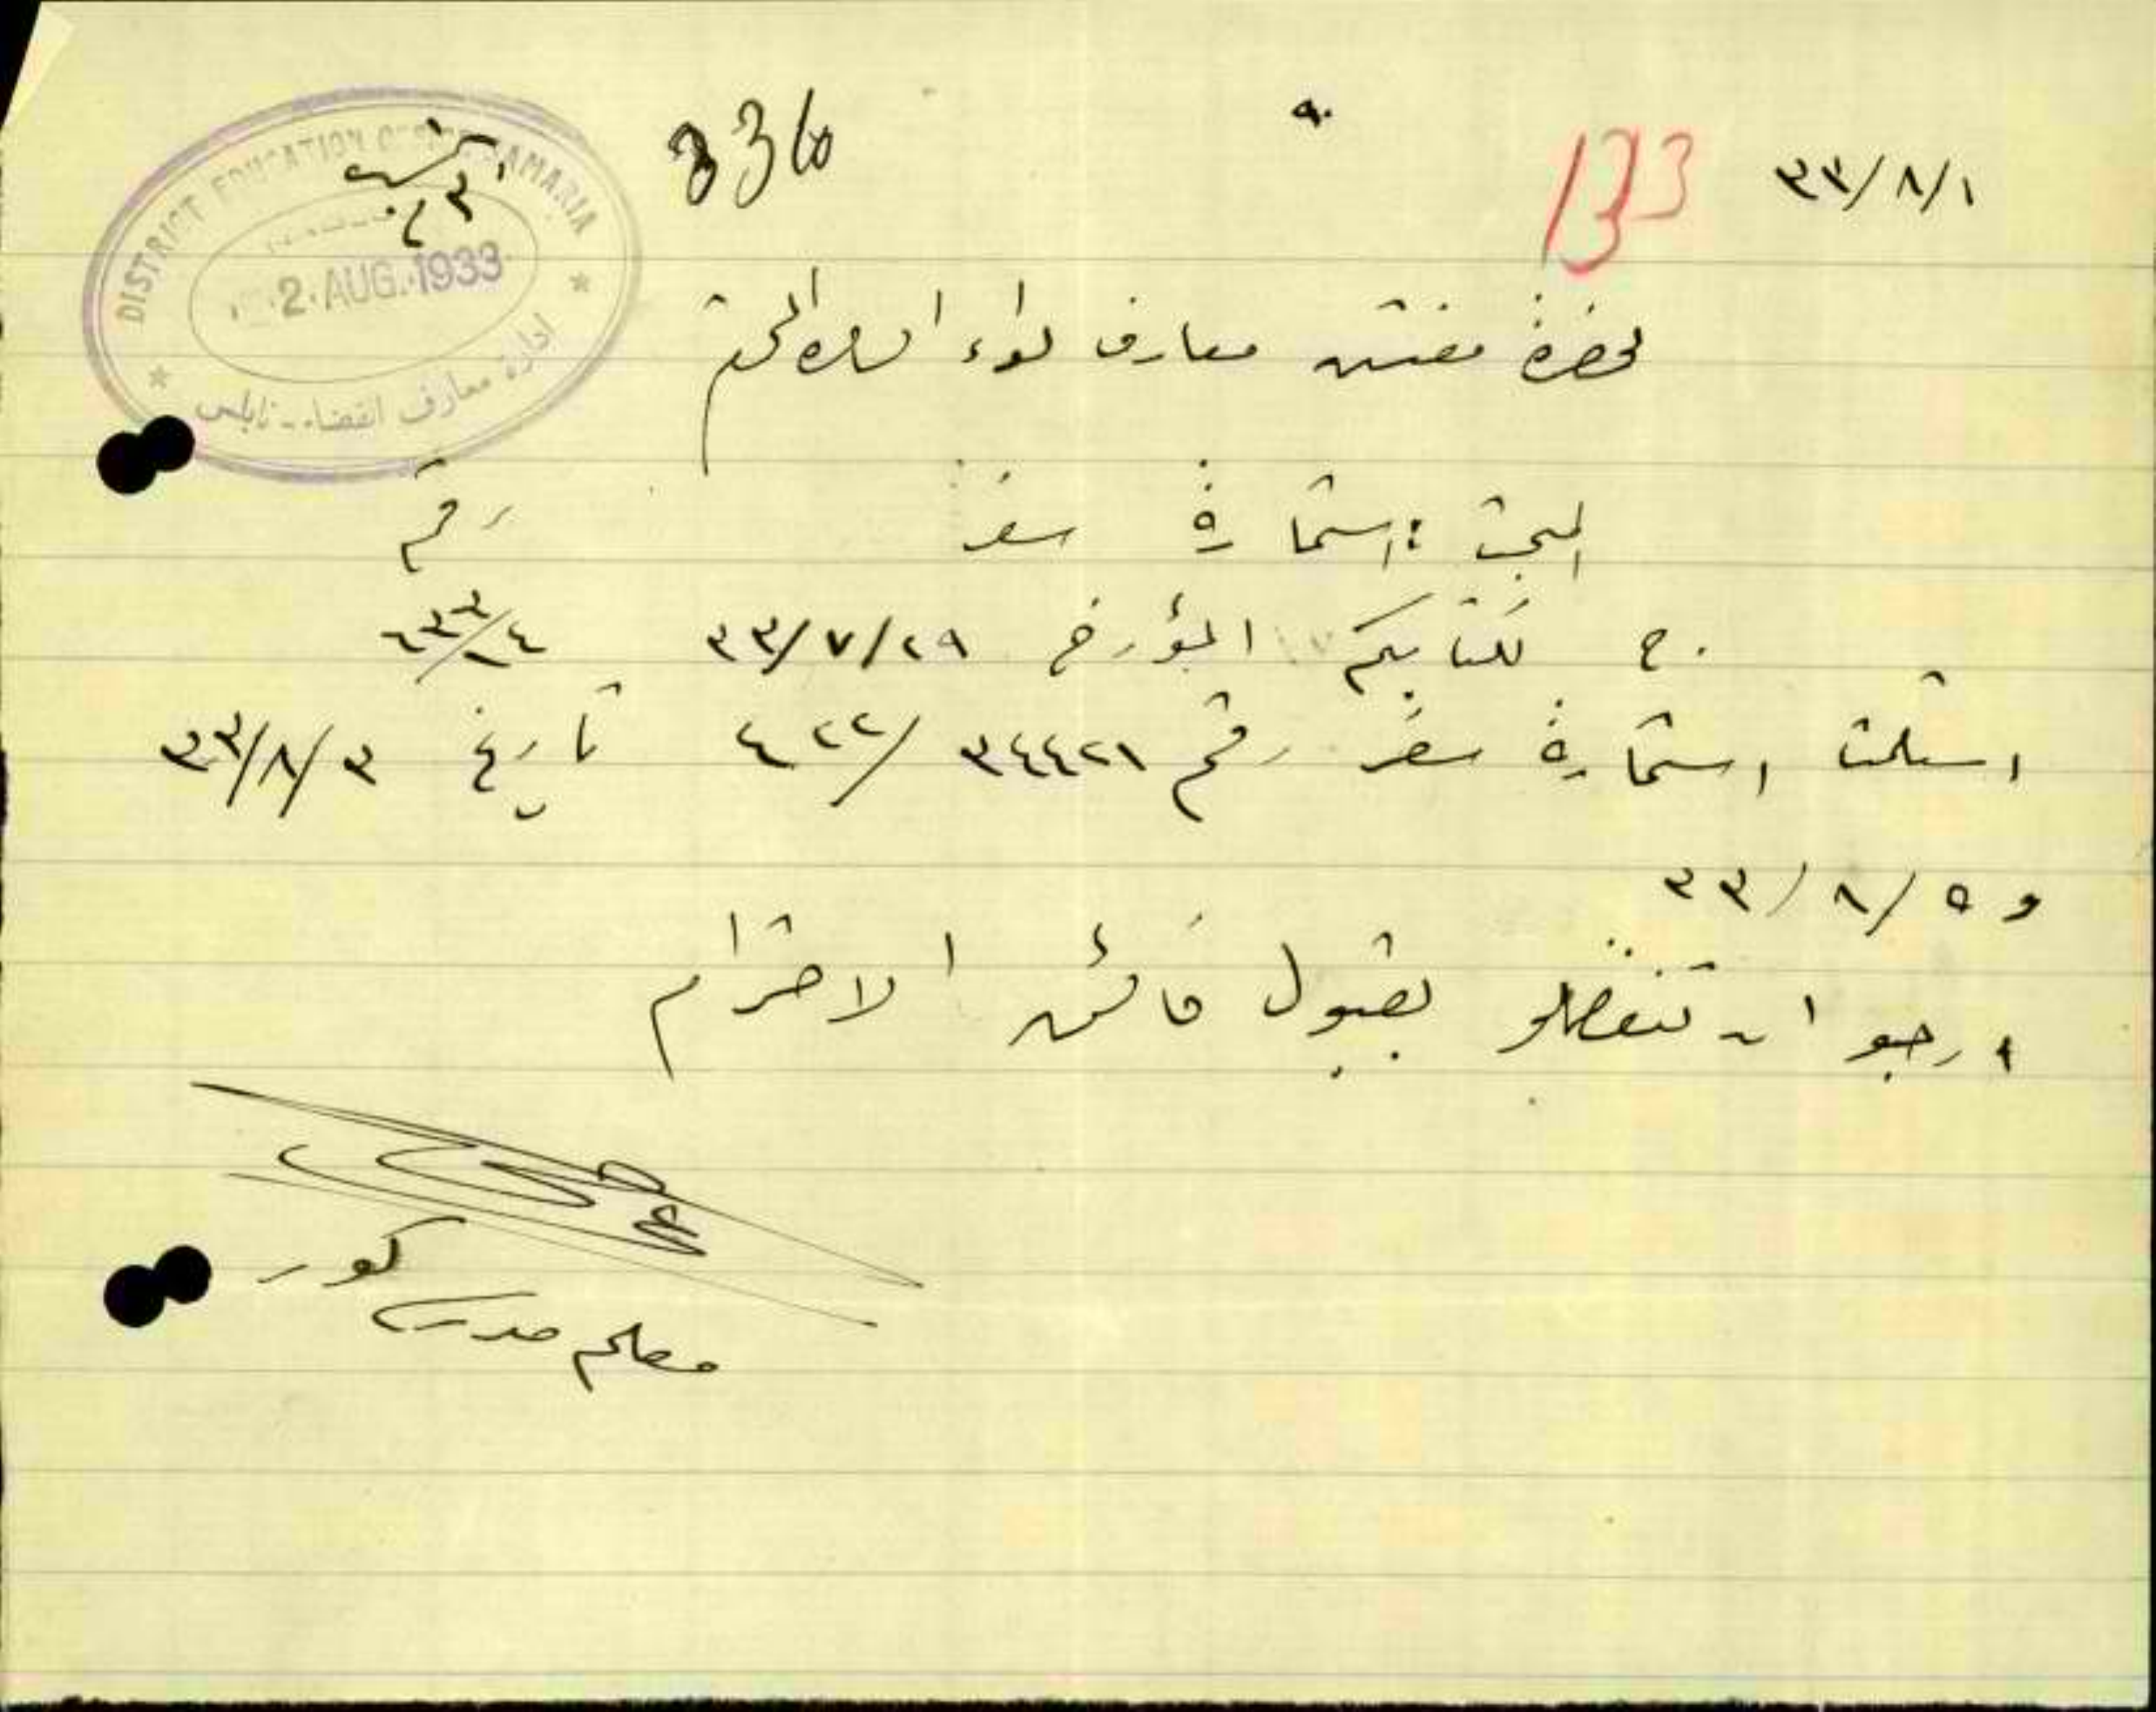 ٣٣/٨/١
133
336
DISTRICT EDUCATION OFFICE SAMARIA
2 AUG. 1933
ادارة معارف القضاء - نابلس
لحضرة مفتش معارف لواء السامرة المحترم
المبحث : استمارة سفر رقم
ج لكتابكم المؤرخ ٣٣/٧/٢٩
استلمت استمارة سفر رقم ٣٤٤٢١ /٤٢٢ تاريخ ٣٣/٨/٣
و ٣٣/٨/٥
ارجو ان تتفضلو بقبول فائق الاحترام
معلم مدرسة كور